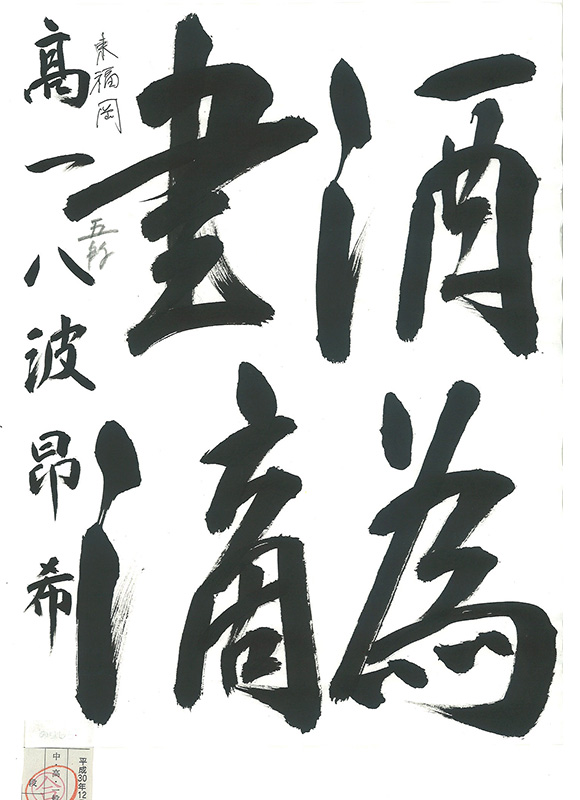 酒為
滴
東福岡
高一八波昂希
平成30年12
中・高・一
段